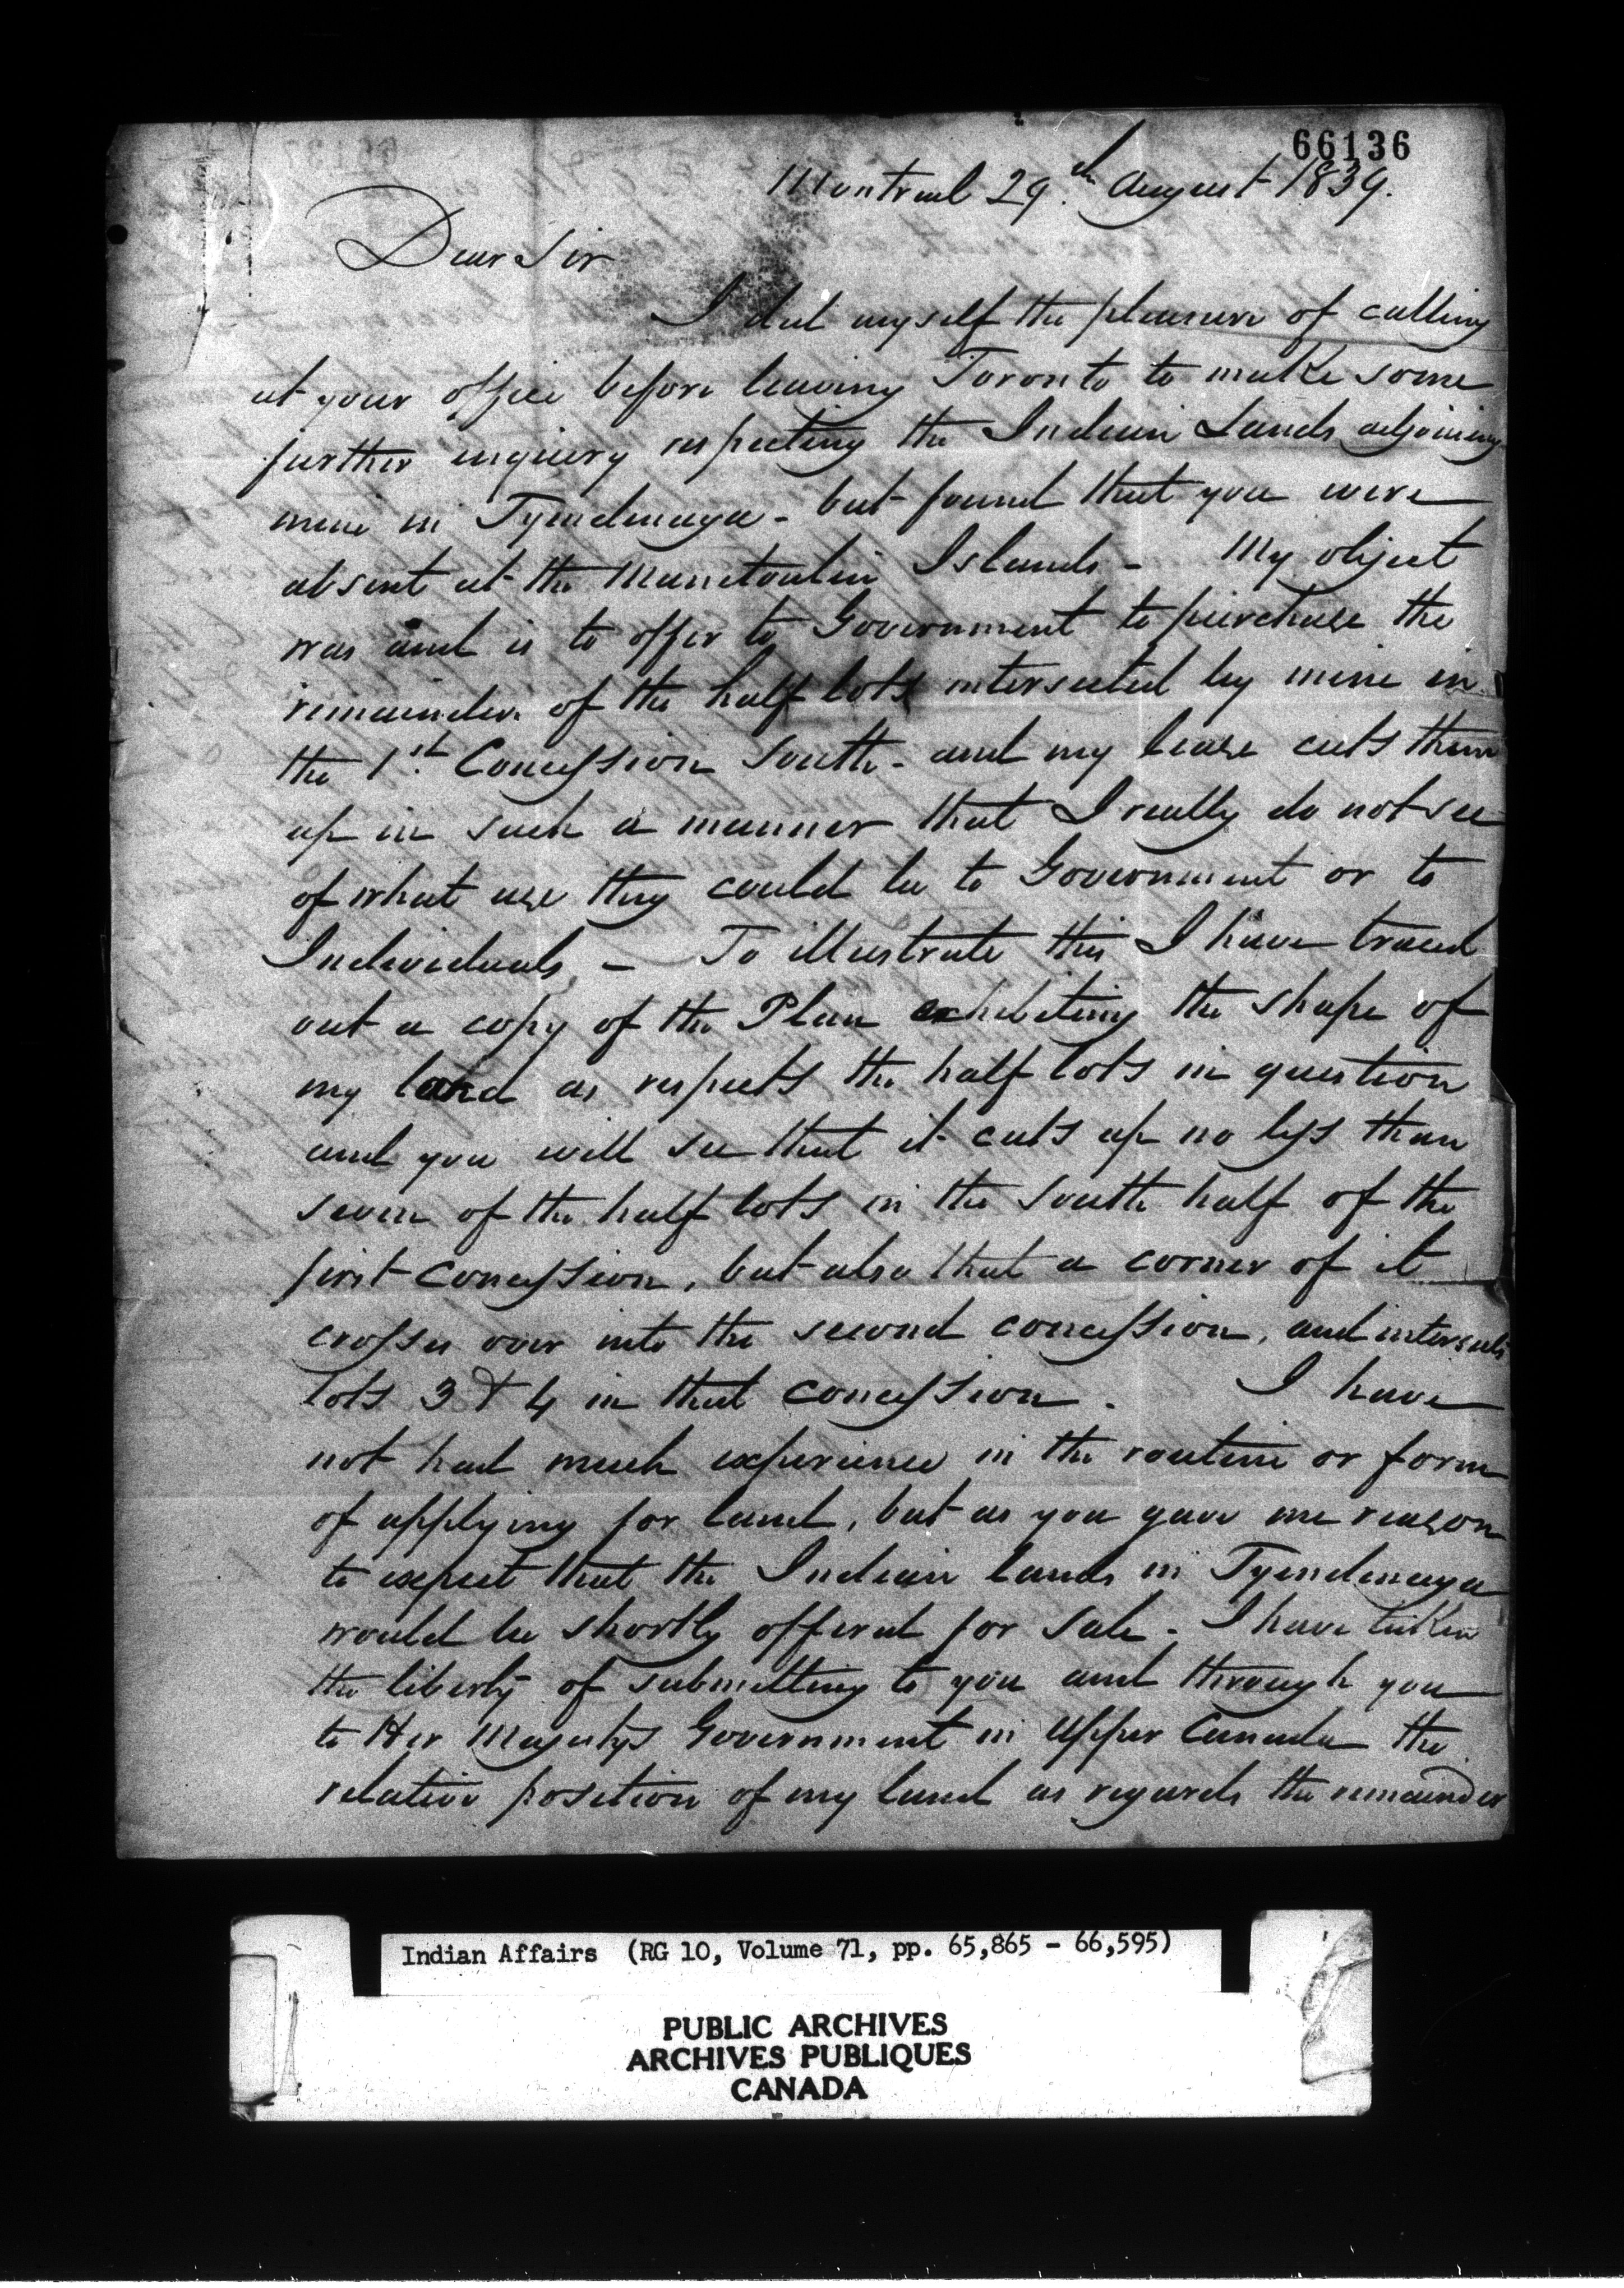 66136
Montreal 29th August 1839.
Dear Sir
I did myself the pleasure of calling
at your office before leaving Toronto to make some
further inquiry respecting the Indian Lands adjoining
mine in Tyendenaga - but found that you were
absent at the Manetoulin Islands - My object
was and is to offer to Government to purchase the
remainder of the half lots intersected by mine in
the 1st Concession South - and my lease cuts them
up in such a manner that I really do not see
of what use they could be to Government or to
Individuals - To illustrate this I have traced
out a copy of the Plan exhibiting the shape of
my land as respects the half lots in question
and you will see that it cuts up no less than
seven of the half lots in the south half of the
first concession, but also that a corner of it
crosses over into the second concession, and intersects
lots 3 & 4 in that concession. I have
not had much experience in the routine or form
of applying for land, but as you gave me reason
to expect that the Indian lands in Tyendenaga
would be shortly offered for sale - I have taken
the liberty of submitting to you and through you
to Her Majesty's Government in Upper Canada the
relative position of my land as regards the remainder
Indian Affairs (RG 10, Volume 71, pp. 65,865 - 66,595)
PUBLIC ARCHIVES
ARCHIVES PUBLIQUES
CANADA